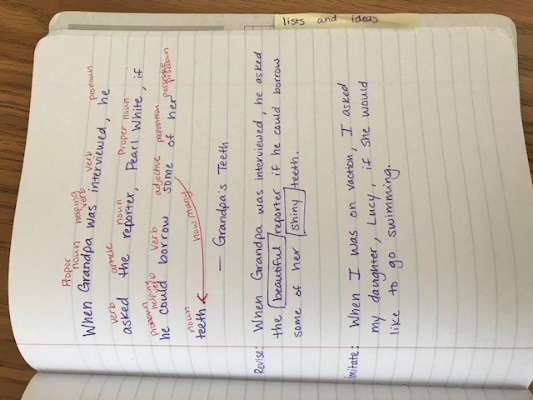 lists and ideas
Proper noun helping verb verb pronoun
When Grandpa was interviewed, he
verb article noun Proper noun
asked the reporter, Pearl White, if
pronoun helping verb verb adjective preposition pronoun
he could borrow some of her
noun how many
teeth
— Grandpa's Teeth
Revise: When Grandpa was interviewed, he asked
the beautiful reporter if he could borrow
some of her shiny teeth.
Imitate: When I was on vaction, I asked
my daughter, Lucy, if she would
like to go swimming.